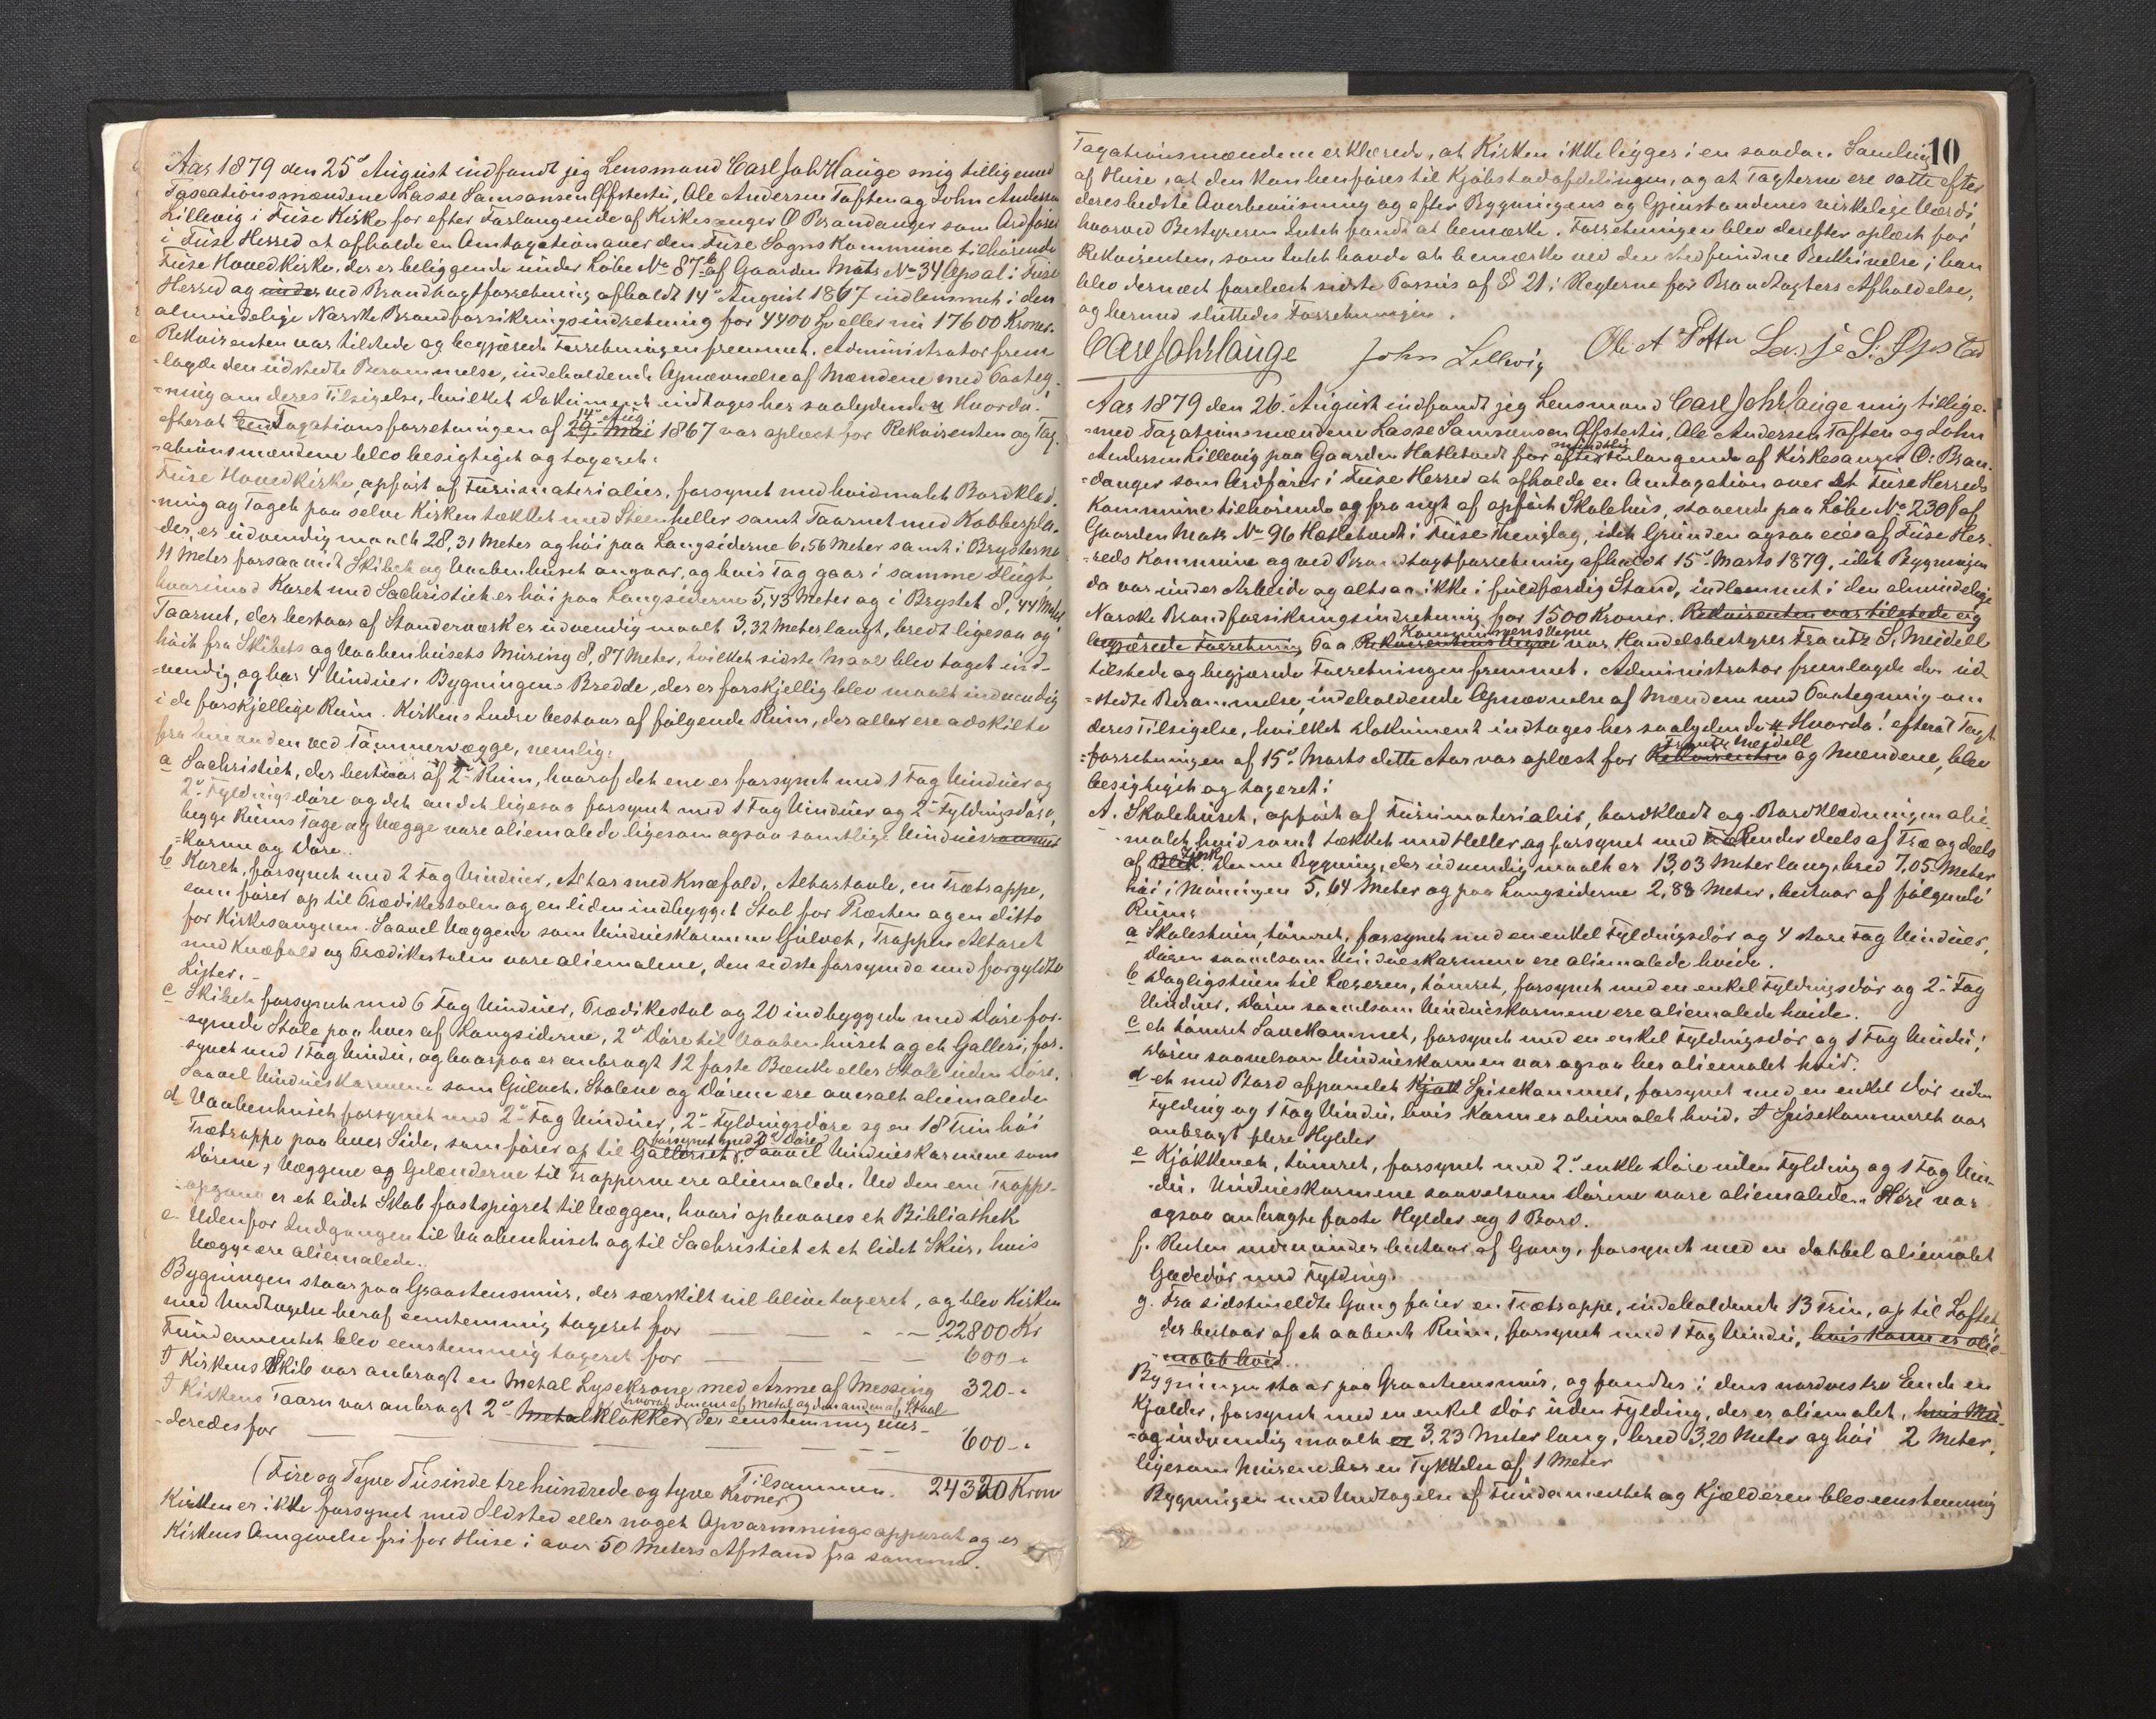 Aar 1879 den 25de August indfandt jeg Lensmand Carl Joh Hauge mig tilligemed
Taxationsmændene Lasse Samsonsen Øfstestü, Ole Andersen Toften og John Andersen
Lillevig i Füse Kirke for efter Forlangende af Kirkesanger O Brandanger som Ordfører
i Füse Herred at afholde en Omtaxation over den Füse Sogns Kommune tilhørende
Füse Hovedkirke, der er beliggende ünder Løbe No 87b af Gaarden Matr No 34 Opsal i Füse
Herred og ünder ved Brandtagtforretning afholdt 14de August 1867 indlemmet i den
almindelige Norske Brandforsikringsindretning for 4400 Spd eller nü 17600 Kroner.
Rekvirenten var tilstede og begjærede Forretningen fremmet. Administrator frem
=lagde den üdstedte Berammelse, indeholdende Opnævnelse af Mændene med Paateg-
=ning om deres Tilsigelse, hvilket Dokument indtages her saalydende: Hvorda!
efterat Taxationsforretningen af 29. Mai 14de Aug 1867 var oplæst for Rekvirenten og Tax-
=ationsmændene blev besigtiget og taxeret:
Füse Hovedkirke, opført af Fürümaterialier, forsynet med hvidmalet Bordklæd-
=ning og Taget paa selve Kirken tækket med Steenheller samt Taarnet med Kobberpla-
der, er üdvendig maalt 28,31 Meter og høi paa Langsiderne 6,56 Meter samt i Brysterne
11 Meter forsaavidt Skibet og Vaabenhüset angaar, og hvis Tag gaar i samme Flügt
hvorimod Koret med Sachristiet er høi paa Langsiderne 5,43 Meter og i Brystet 8,44 Meter
Taarnet, der bestaar af Standerværk er üdvendig maalt 3,32 Meter langt, bredt ligesaa og
høit fra Skibets og Vaabenhüsets Müring 8,87 Meter, hvilket sidste Maal blev taget ind-
=vendig, og har 4 Vindüer. Bygningens Bredde, der er forskjellig blev maalt indvendig
i de forskjellige Rüm. Kirkens Indre bestaar af følgende Rüm, der aller ere adskilte
fra hverandre ved Tømmervægge, nemlig:
a Sachristiet, der bestaar af 2de Rüm, hvoraf det ene er forsynet med 1 Fag Vindüer og
2de Fyldingsdøre og det andet ligesaa forsynet med 1 Fag Vindüer og 2de Fyldingsdøre,
begge Rüms Tage og Vægge vare oliemalede ligesom ogsaa samtlige Vindües
=karme og Døre.
b Koret, forsynet med 2 Fag Vindüer, Altar med Knæfald, Altartavle, en Trætrappe,
som fører op til Prædikestolen og en liden indbygget Stol for Præsten og en ditto
for Kirkesangeren. Saavel Væggene som Vindüeskarmene Gülvet, Trappen Altaret
med Knæfald og Prædikestolen vare oliemalene, den sidste forsynede med forgyldte
Lister.-
c Skibet forsynet med 6 Fag Vindüer, Prædikestol og 20 indbyggede med Døre for-
=synede Stole paa hver af Langsiderne, 2de Døre til Vaabenhüset og et Galleri, for-
synet med 1 Fag Vindü, og hvorpaa er anbragt 12 faste Bænke eller Stole üden Døre,
Saavel Vindüeskarmene som Gülvet, Stolene og Dørene ere overalt oliemalede
d Vaabenhüset forsynet med 2de Fag Vindüer, 2de Fyldingsdøre og en 18 Trin høi
Trætrappe paa hver Side, som fører op til Galleriet, forsynet med 2de Døre. Saavel Vindüeskarmene som
Dørene, Væggene og Gelænderne til Trapperne ere oliemalede. Ved den ene Trappe-
=opgang er et lidet Skab fastspigret til Væggen, hvori opbevares et Bibliothek
e Udenfor Indgangen til Vaabenhüset og til Sachristiet et et lidet Skür, hvis
Vægge ere oliemalede.
Bygningen staar paa Graastensmür, der særskilt vil blive taxeret, og blev Kirken
med Undtagelse heraf eenstemmig taxeret for 22800 Kr
Fündamentet blev eenstemmig taxeret for 600 -
I Kirkens Skib var anbragt en Metal Lysekrone med Arme af Messing 320 -
I Kirkens Taarn var anbragt 2de Metal Klokker, hvoraf den ene af Metal og den anden af Staal der eenstemmig vür-
=deredes for 600 -
Tilsammen 24320 Kroner
(Fire og Tyve Tüsinde trehündrede og tyve Kroner)
Kirken er ikke forsynet med Ildsted eller noget Opvarmningsapparat og er
Kirkens Omgivelse fri for Hüse i over 50 Meters Afstand fra samme.
10
Taxationsmændene erklærede, at Kirken ikke ligger i en saadan Samling
af Hüse, at den kan henføres til Kjøbstadafdelingen, og at Taxterne ere satte efter
deres bedste Overbeviisning og efter Bygningens og Gjenstandenes virkelige Værdi
hvorved Bestyreren Intet fandt at bemærke. Forretningen blev derefter oplæst for
Rekvirenten, som Intet havde at bemærke ved den stedfündne Beskrivelse; han
blev dernæst forelæst sidste Passüs af § 21 i Reglerne for Brandtaxters Afholdelse,
og hermed slüttedes Forretningen.
Carl Joh Hauge John Lillevig Ole A Toften Lasse S. Øfstestü
Aar 1879 den 26de August indfandt jeg Lensmand Carl Joh Hauge mig tillige-
=med Taxationsmændene Lasse Samsonsen Øfstestü, Ole Andersen Toften og John
Andersen Lillevig paa Gaarden Hatletvedt for efter mündtlig Forlangende af Kirkesanger O. Bran-
=danger som Ordfører i Füse Herred at afholde en Omtaxation over et Füse Herreds
Kommüne tilhørende og fra nyt af opført Skolehüs, staaende paa Løbe No 230b af
Gaarden Matr No 96 Hatletvedt i Füse Thinglag, idet Gründen ogsaa eies af Füse Her-
=reds Kommüne og ved Brandtaxtforretning afholdt 15de Marts 1879, idet Bygningen
da var ünder Arbeide og altsaa ikke i füldfærdig Stand, indlemmet i den almindelige
Norske Brandforsikringsindretning for 1500 Kroner. Rekvirenten var tilstede og
begjærede Forretning Paa Rekvirentens Vegne Kommunens Vegne var Handelsbestyrer Frantz S. Meidell
tilstede og begjærede Forretningen fremmet. Administrator fremlagde den üd-
=stedte Berammelse, indeholdende Opnævnelse af Mændene med Paategning om
deres Tilsigelse, hvilket Dokument indtages her saalydende: Hvorda! efterat Taxt
=forretningen af 15de Marts dette Aar var oplæst for Rekvirenten Frantz Meidell og Mændene, blev
besigtiget og taxeret:
A. Skolehüset, opført af Fürümaterialier, bordklædt og Bordklædningen olie-
=malet hvid samt tækket med Heller og forsynet med Render deels af Træ og deels
af Blik Zink. Denne Bygning, der üdvendig maalt er 13,03 Meter lang, bred 7,05 Meter
høi i Møningen 5,64 Meter og paa Langsiderne 2,88 Meter, bestaar af følgende
Rüm:
a Skolestuen, tømret, forsynet med en enkel Fyldingsdør og 4 store Fag Vindüer,
Døren saavelsom Vindüeskarmene ere oliemalede hvide.
b Dagligstuen til Læreren, tømret, forsynet med en enkel Fyldingsdør og 2de Fag
Vindüer, Døren saavelsom Vindüeskarmene ere oliemalede hvide.
c et tømret Sovekammer, forsynet med en enkel Fyldingsdør og 1 Fag Vindü;
Døren saavelsom Vindüeskarmen var ogsaa her oliemalet hvid.
d et med Bord afpanelet Spisekammer, forsynet med en enkel Dør uden
Fylding og 1 Fag Vindü, hvis Karm er oliemalet hvid. I Spisekammeret var
anbragt flere Hylder
e Kjøkkenet, tømret, forsynet med 2de enkle Døre uden Fylding og 1 Fag Vin-
=dü. Vindüeskarmene saavelsom Dørene vare oliemalede. Heri var
ogsaa anbragte faste Hylder og 1 Bord.
f. Resten nedenünder bestaar af Gang, forsynet med en dobbel oliemalet
Gadedør med Fylding.
g. Fra sidstmeldte Gang fører en Trætrappe, indeholdende 13 Trin, op til Loftet
der bestaar af et aabent Rüm, forsynet med 1 Fag Vindü, hvis Karm er olie-
=malet hvid.
Bygningen staar paa Graastensmür, og fandtes i dens nordvestre Ende en
Kjælder, forsynet med en enkel Dør üden Fylding, der er oliemalet, hvis Mü-
=og indvendig maalt er 3,23 Meter lang, bred 3,20 Meter og høi 2 Meter,
ligesom Müren har en Tykkelse af 1 Meter
Bygningen med Undtagelse af Fündamentet og Kjælderen blev eenstemmig